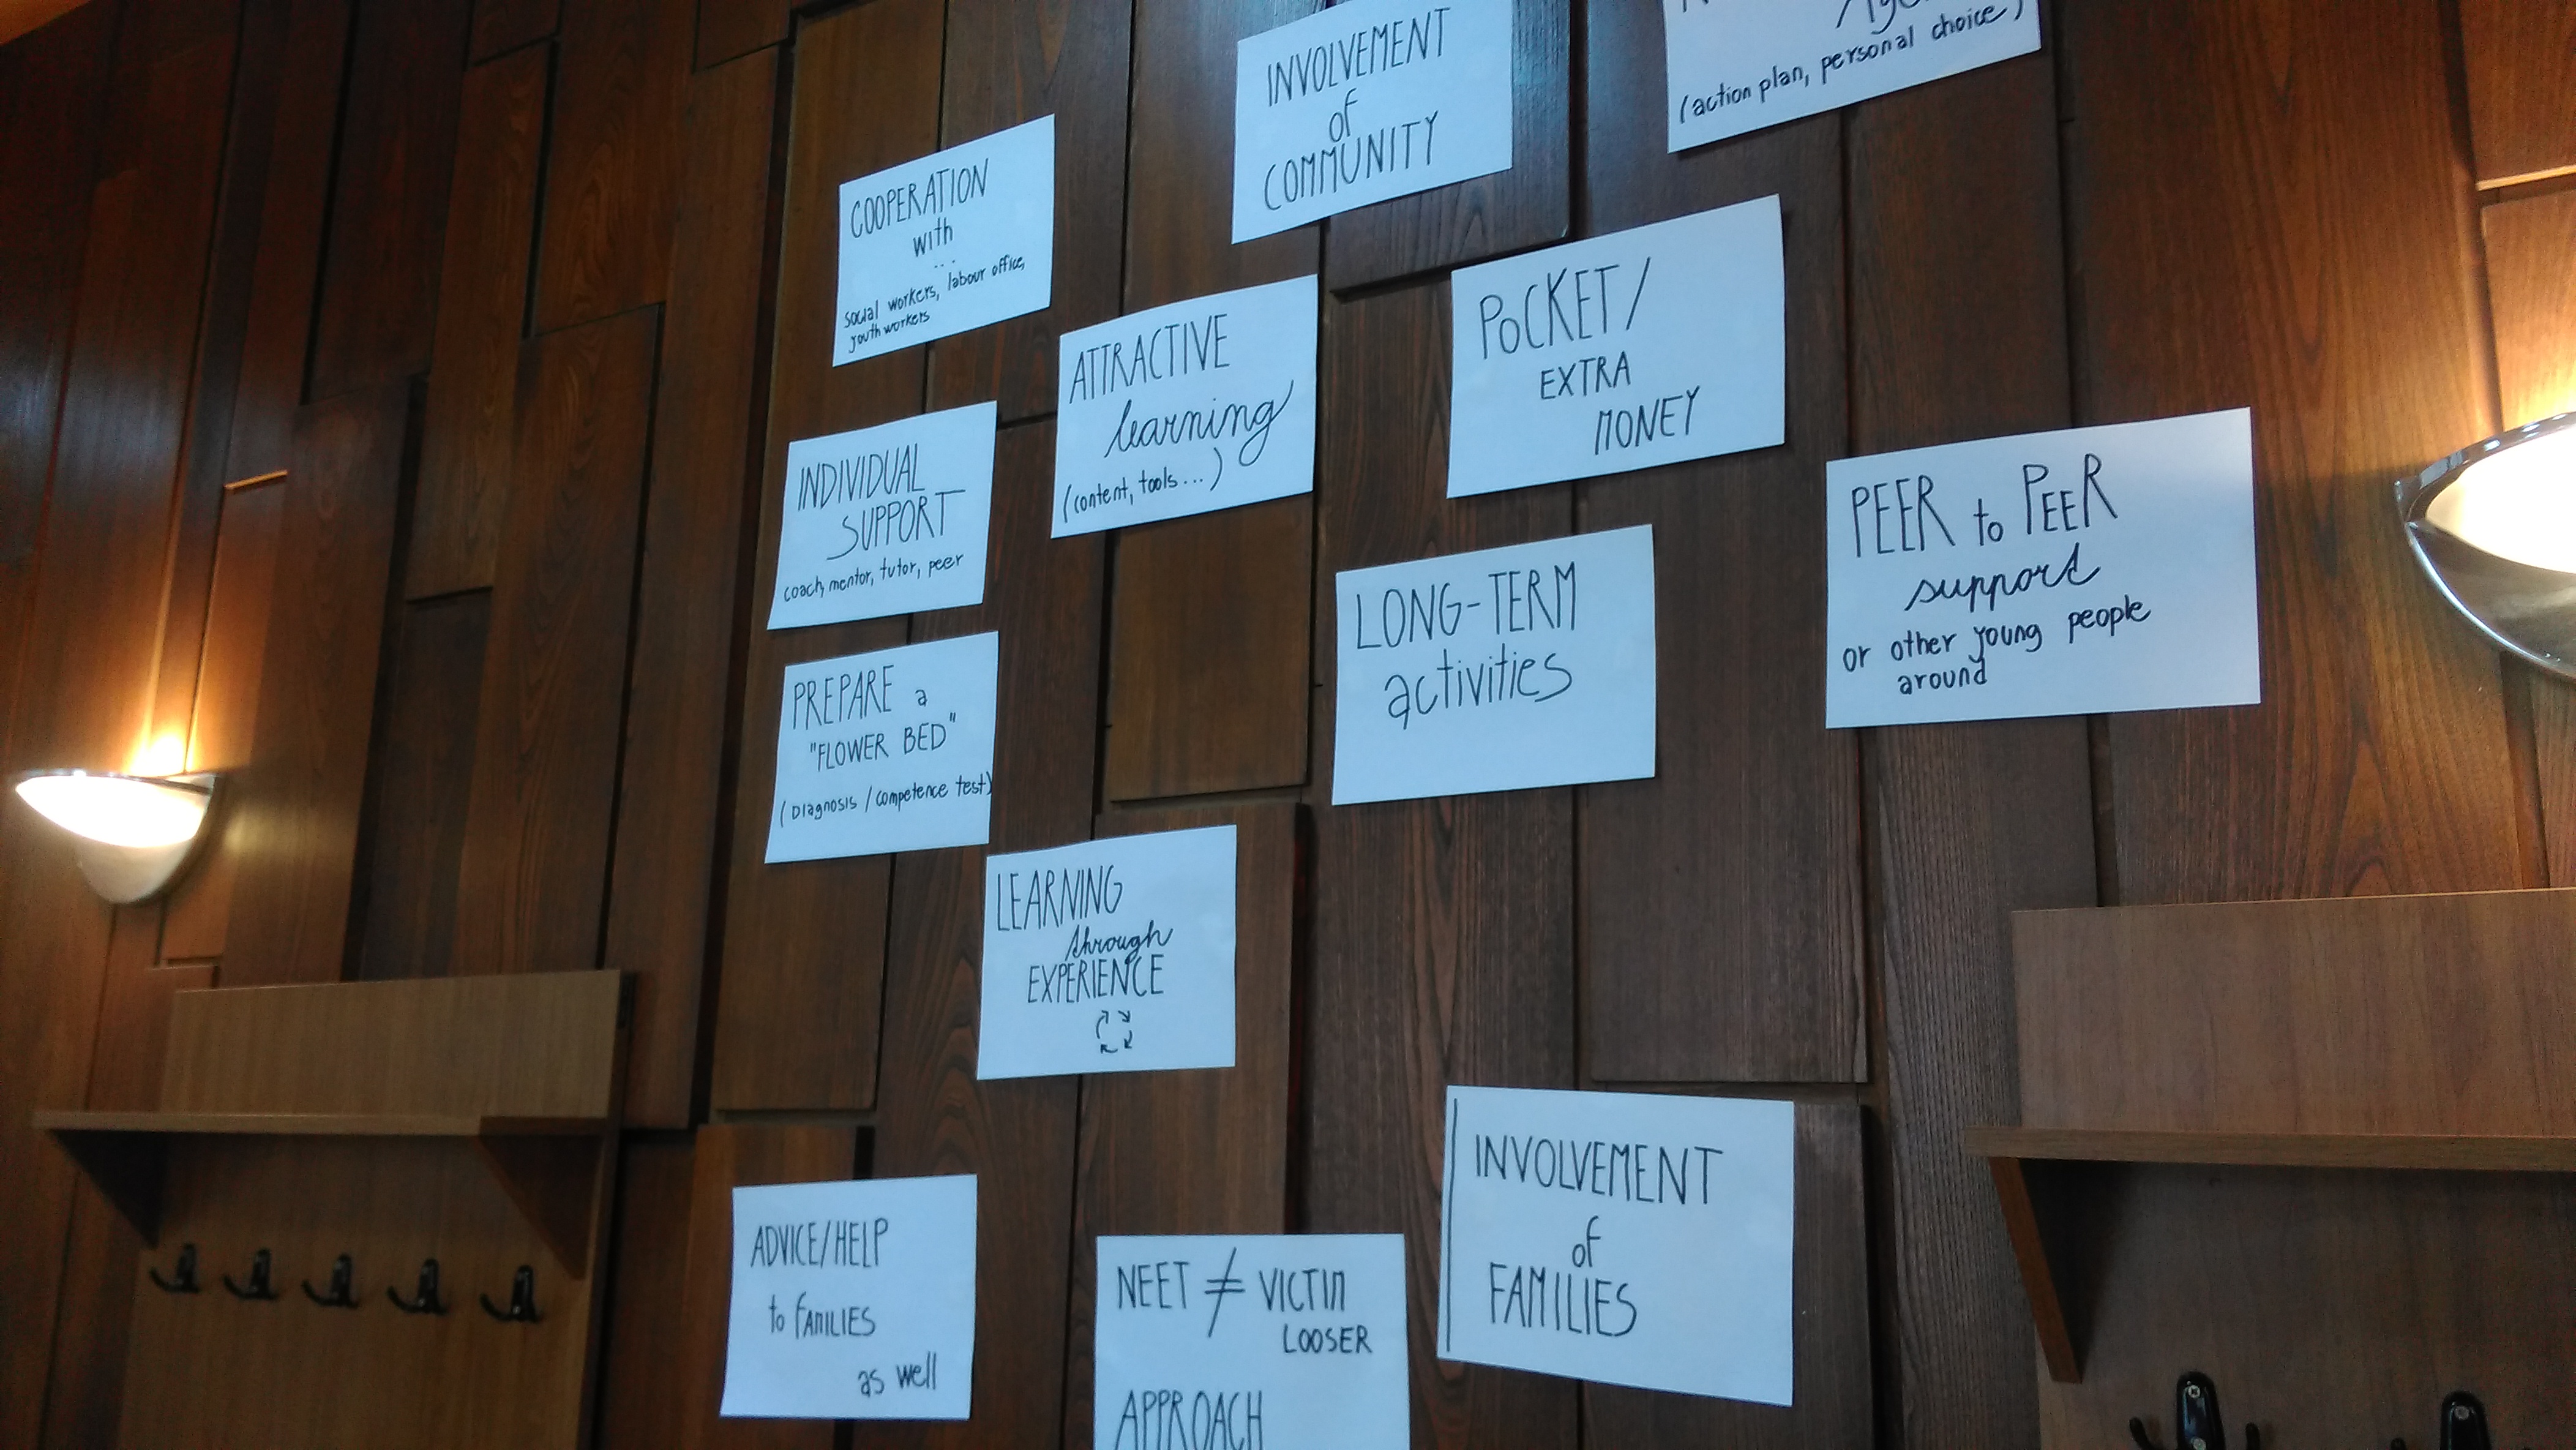 (action plan, personal choice)
INVOLVEMENT
of
COMMUNITY
COOPERATION
with
...
social workers, labour office,
youth workers
ATTRACTIVE
learning
(content, tools...)
POCKET/
EXTRA
MONEY
INDIVIDUAL
SUPPORT
coach, mentor, tutor, peer
PEER to PEER
support
or other young people
around
LONG-TERM
activities
PREPARE a
"FLOWER BED"
(DIAGNOSIS / competence test)
LEARNING
through
EXPERIENCE
INVOLVEMENT
of
FAMILIES
ADVICE/HELP
to FAMILIES
as well
NEET ≠ VICTIM
LOOSER
APPROACH